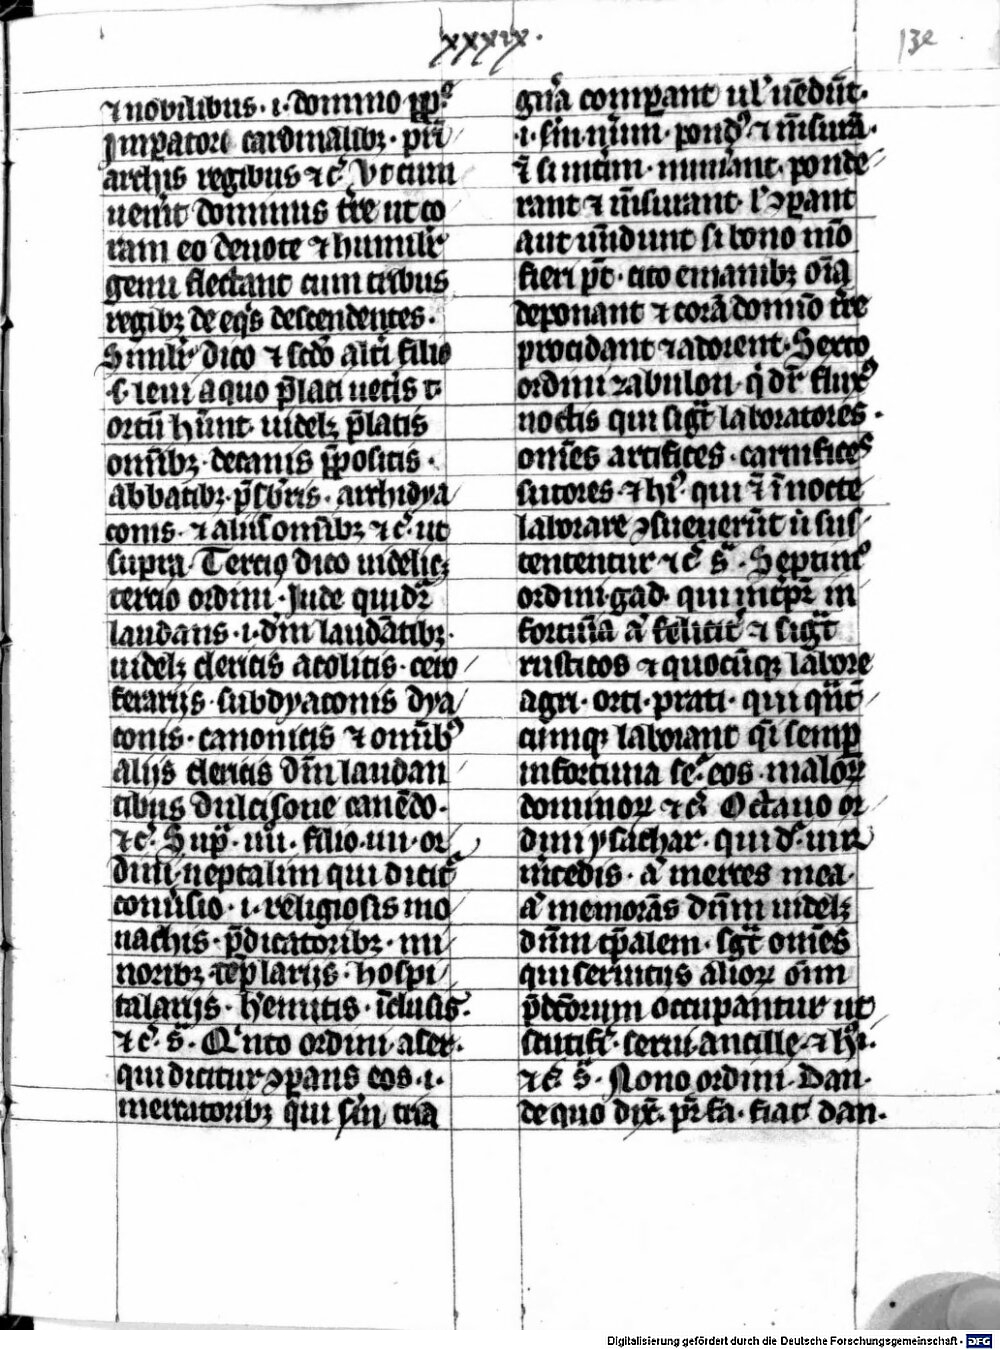 xxxix.
132
⁊ nobilibus · i · domino pp̄e
Imꝑatori cardinalibꝫ · pri
archis regibus ⁊ cͨ. Vt cum
uen̄it dominus t̄re ut co
ram eo deuote ⁊ humilit̾
genu flectant cum tribus
regibꝫ de eq̾s descendentes ·
Simil̾r dico ⁊ scd̄o alti filio
· s · leui a quo p̄lati uet̾is t ·
ortū hn̄t · uidelꝫ p̄latis
om̄ibꝫ · decanis p̄positis ·
abbatibꝫ · p̄sb̾ris · archidya
conis · ⁊ alijs om̄ibꝫ ⁊ cͨ. ut
supra · Tercio dico uidelicꝫ
tercio ordini · Iude qui dr̄
laudans · i · dm̄ laudātibꝫ ·
uidelꝫ clericis acolitis · cero
ferarijs · subdyaconis dya
conis · canonicis ⁊ om̄ibꝰ
alijs clericis dm̄ laudan
tibus dulcisone canēdo ·
⁊ cͨ. Sup̄ · iiii · filio · iiii · or
dini · neptalim qui dicit̾
conu̾sio · i · religiosis mo
nachis · p̄dicatoribꝫ · mi
noribꝫ · tēplarijs · hospi
talarijs · h̾emitis · īclusis ·
⁊ cͨ. s̄ · Qͥnto ordini aser ·
qui dicitur ꝯpans eos · i ·
mercatoribꝫ qui sm̄ tria
gn̾a compant ul̾ uēdūt ·
· i · sm̄ num̄ · pond̾ ⁊ m̄surā ·
⁊ si intm̄ · num̄ant · ponde
rant ⁊ m̄surant · l̾ ꝯꝑant
aut uēdunt si bono mō
fieri pt̄ · cito e manibꝫ oīa
deponant ⁊ corā domīo t̄re
procidant ⁊ adorent · Sexto
ordini zabulon · q̾ dr̄ fluxꝰ
noctis qui sigt̄ laboratores ·
om̄es artifices · carnifices
sutores · ⁊ hiͥ qui ⁊ ī nocte
laborare ꝯsueuerūt ū sus
tententur ⁊ cͨ. s̄ · Septimͦ
ordini · gad · qui int̾pr̄ in
fortūa a̾ felicit̾ ⁊ sigt̄
rusticos ⁊ quocūqꝫ labore
agri · orti · prati · qui qn̄t
cumqꝫ laborant qͥ semꝑ
infortuna se̾ eos · maloꝝ
dominoꝝ ⁊ cͨ. Octauo or
dini ysachar · qui dr̄ uir
m̄cedis · a̾ merces mea ·
a̾ memorās dn̄m uidelꝫ
dn̄m tp̄alem · sgt̄ om̄es
qui seruitijs alioꝝ om̄
p̄dc̄orum occupantur ut
scutif̄ · serui · ancille · ⁊ hͥi ·
⁊ cͨ. s̄ · Nono ordini · Dan ·
de quo dix̄ · pr̄ fa · fiat dan ·
Digitalisierung gefördert durch die Deutsche Forschungsgemeinschaft - DFG